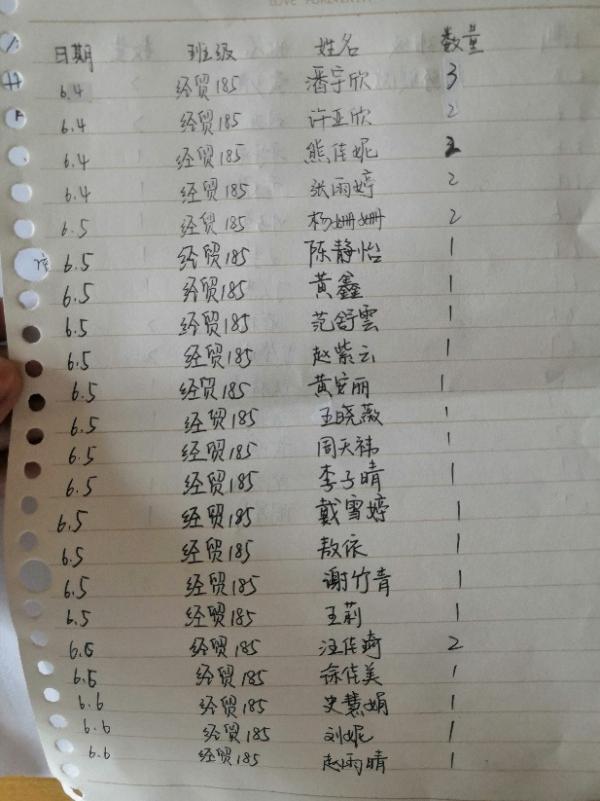 LOVE FOREVER
日期 班级 姓名 数量
6.4 经贸185 潘宇欣 3
6.4 经贸185 许亚欣 2
6.4 经贸185 熊佳妮 2
6.4 经贸185 张雨婷 2
6.5 经贸185 杨姗姗 2
6.5 经贸185 陈静怡 1
6.5 经贸185 黄鑫 1
6.5 经贸185 范舒雲 1
6.5 经贸185 赵紫云 1
6.5 经贸185 黄安丽 1
6.5 经贸185 王晓薇 1
6.5 经贸185 周天祎 1
6.5 经贸185 李子晴 1
6.5 经贸185 戴雪婷 1
6.5 经贸185 敖依 1
6.5 经贸185 谢竹青 1
6.5 经贸185 王莉 1
6.6 经贸185 汪佳琦 2
6.6 经贸185 徐佳美 1
6.6 经贸185 史慧娟 1
6.6 经贸185 刘妮 1
6.6 经贸185 赵雨晴 1